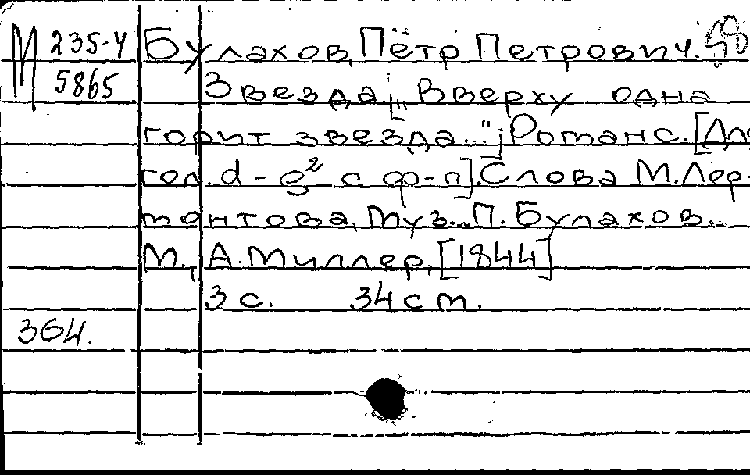 М 235-4 Булахов, Пётр Петрович.
5865 Звезда „Вверху одна
горит звезда..." Романс. [Для
гол. d - g² с ф-п]. Слова М. Лер-
монтова, Муз... П. Булахов...
М., А. Миллер, [1844]
3 с. 34 см.
364.